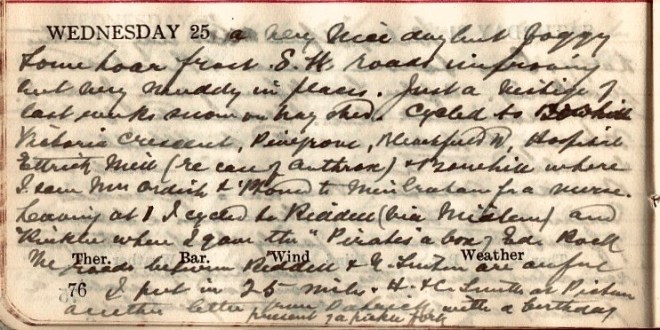 WEDNESDAY 25 a very nice day but foggy
Some hoar frost. S. W. roads improving
but very muddy in places. Just a vestige of
last weeks snow on hay shed. Cycled to Bowhill
Victoria Crescent, Pinegrove, Hospital
Ettrick Mill (re case of anthrax) & where
I saw Mrs & 'Phoned to Miss Graham for a nurse.
Leaving at 1 I cycled to Riddell (via Midlem) and
where I gave the "Pirates" a box of Ed. Rock
The roads between Riddell & are awful
Ther. Bar. Wind Weather
76 I put in 25 miles. H. &
another letter from with a birthday
present of a pickle fork